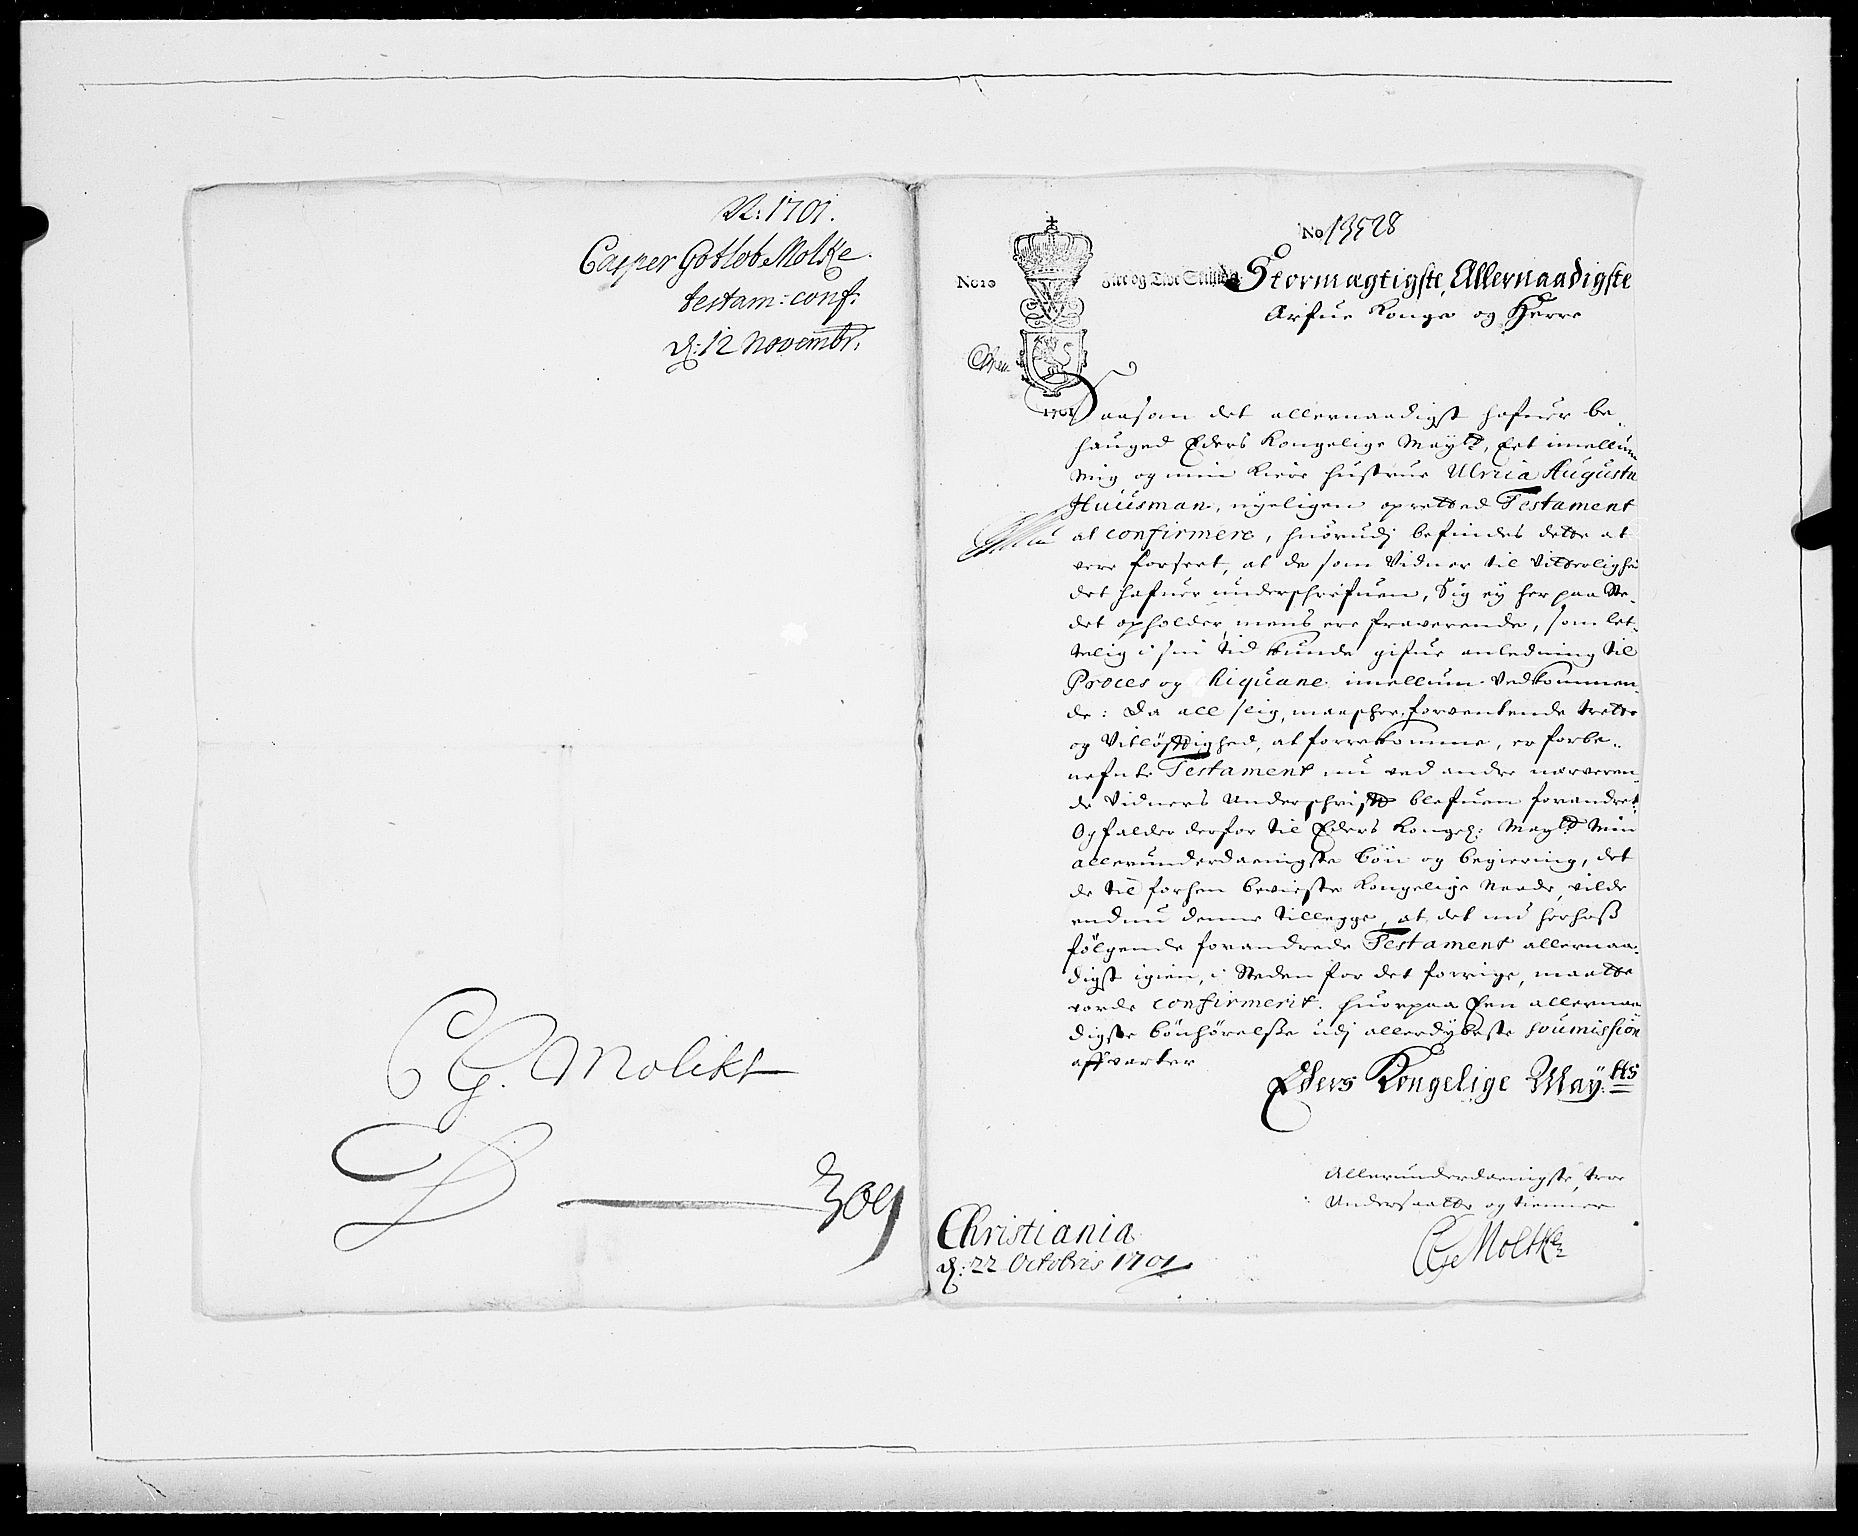 N: 1701.
Casper Gotlob Molke.
testam: conf:
d: 12 Novembr.
C G. Moltke
309
No 13528
No 10
Fire og Tive Skilling
1701
Stormægtigste, Allernaadigste
Arfue Konge og Herre
Saasom det allernaadigst hafuer be-
haaged Eders Kongelige Mayt, Eet imellum
mig og min kiere hustrue Ulrica Augusta
Huusman, nyeligen opretted Testament
at confirmere, huorudj befindes dette at
vere forseet, at de som Vidner til Vitterlighed
det hafuer underschrefuen, Sig ey her paa Ste-
det opholder, mens ere fraverende, som let-
telig i sin tid kunde gifue anledning til
Proces og Chiquane imellum Vedkommen-
de: Da all slig, maaschee forventende trette
og Vitløftighed, at forrekomme, er forbe-
nefnte Testament nu ved andre nærveren-
de Vidners Underschrift blefuen forandret:
Og falder derfor til Eders Kongel: Mayt min
allerunderdaanigste bøn og begiering, det
de til forhen beviiste Kongelige Naade, vilde
endnu denne tillegge, at det nu herhoß
følgende forandrede Testament allernaa-
digst igien, i Steden for det forrige, maatte
vorde confirmerit. huorpaa Een allernaa-
digste bønhørelse udj allerdybeste soumission
affvarter
Eders Kongelige May:tts
Allerunderdaanigste, troe
Undersaatte og tienner
CG Moltke
Christiania
d: 22 Octobris 1701